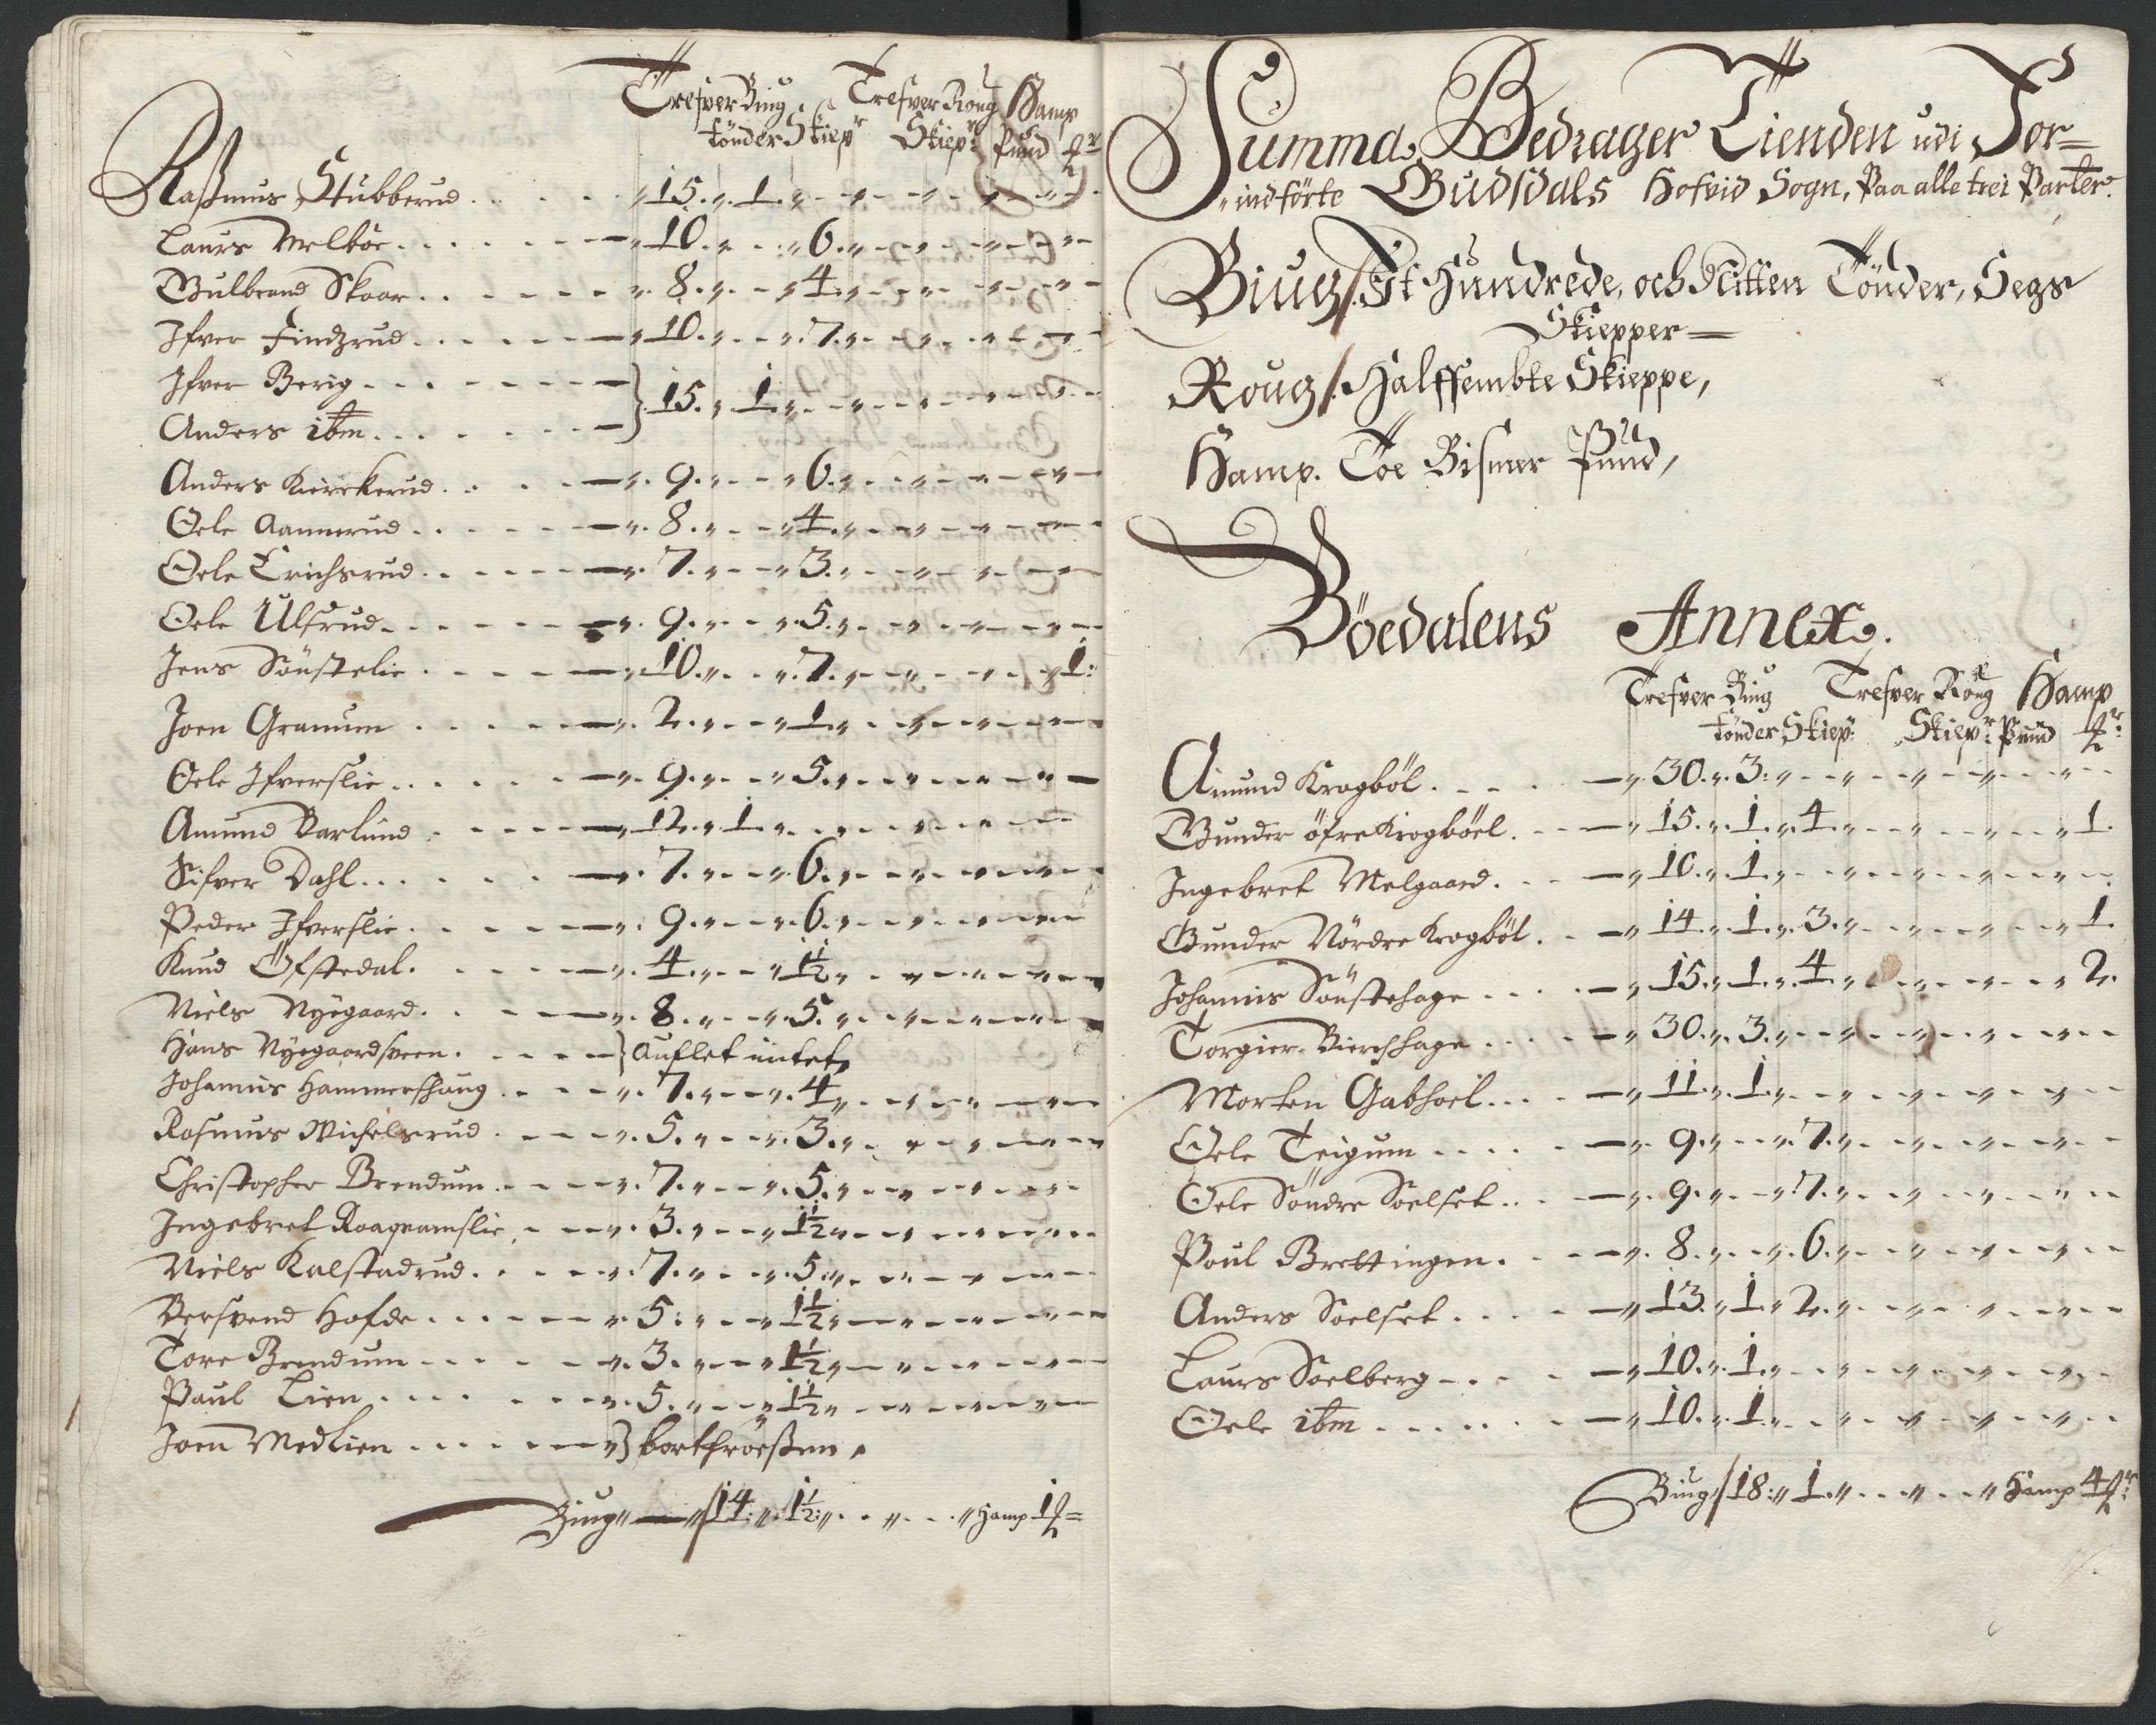 Trefver Biug, Trefver Roug Hamp
tönder Skiepr Skiepr Pund
Rasmus Stubberud . . . . 15. 1.
Laurs Melböe . . . . . 10. 6.
Gulbrand Skaar . . . . . 8. 4.
Ifver Findzrud . . . . . 10. 7.
Ifver Berig . . . . . } 15. 1.
Anders ibm . . . . . }
Anders Kirckerud . . . 9. 6.
Oele Aannerud . . . . 8. 4.
Oele Erichsrud . . . . 7. 3.
Oele Ulsrud . . . . . 9. 5.
Jens Sönstelie . . . . 10. 7. 1:
Joen Granum . . . . . 2. 1.
Oele Ifverslie . . . . . 9. 5.
Amund Barlund . . . . 12. 1.
Sifver Dahl . . . . . 7. 6.
Peder Ifverslie . . . . 9. 6.
Knud Öfstedal . . . . 4. 1½
Niels Nygaard . . . . 8. 5.
Hans Nyegaardsveen . . . } Auflet intet,
Johannis Hammershaug . . . 7. 4.
Rasmus Michelsrud . . . 5. 3.
Christopher Brendum . . . 7. 5.
Ingebret Roaqvamslie . . . 3. 1½
Niels Kalstadrud . . . . 7. 5.
Bersvend Hofde . . . . . 5: 1½
Tore Brendum . . . . . 3. 1½
Paul Lien . . . . . 5. 1½
Joen Medlien . . . . . } bortfröesßen,
Biug 14: 1½: Hamp 1
Summa Bedrager Tienden udi For=
indförte Gudsdals Hofvid Sogn, Paa alle trei Parter.
Biug/ Et Hundrede, och Nitten Tönder, Segs
Skiepper=
Roug/ Halffembte Skieppe,
Hamp. Toe Bismer Pund,
Böedalens Annex.
Trefver Biug Trefver Roug Hamp
tönder Skiep: Skiepr: Pund
Amund Kragböl . . . . 30. 3:
Gunder öfre Kragböel . . . 15. 1. 4. 1.
Ingebret Melgaard . . . 10. 1.
Gunder Nördre Kragböl . . 14. 1. 3. 1.
Johannis Sönstehage . . . 15. 1. 4. 2.
Torgier Bierchhage . . . 30. 3.
Morten Gabhoel . . . 11. 1.
Oele Teigum . . . . . 9. 7.
Oele Söndre Soelset . . . 9. 7.
Poul Brettingen . . . . 8. 6.
Anders Soelset . . . . 13. 1. 2.
Laurs Soelberg . . . . 10. 1.
Oele ibm . . . . . . 10. 1.
Biug/ 18: 1. Hamp 4